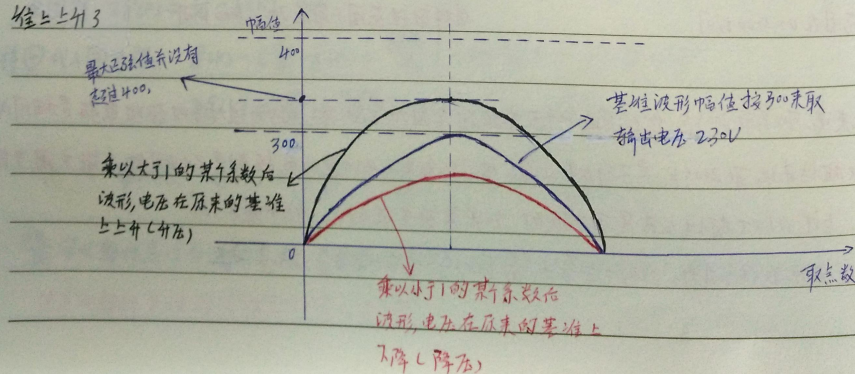 准上上升3
幅值
400
最大正弦值并没有
超过400,
基准波形幅值按300来取
输出电压230V
300
乘以大于1的某个系数后
波形,电压在原来的基准
上上升(升压)
0
取点数
乘以小于1的某个系数后
波形,电压在原来的基准上
下降(降压)